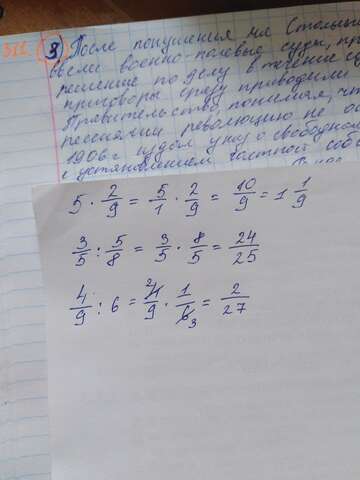 311 3 После покушения на Столып
ввели военно-полевые суды, пр
решение по делу в течение
приговоры сразу приводили
Правительство, понимая, чт
песнями революцию не
1906 г издал указ о свободном
с установлением частной соб
5 · 2/9 = 5/1 · 2/9 = 10/9 = 1 1/9
3/5 : 5/8 = 3/5 · 8/5 = 24/25
4/9 : 6 = 4/9 · 1/6 = 2/27